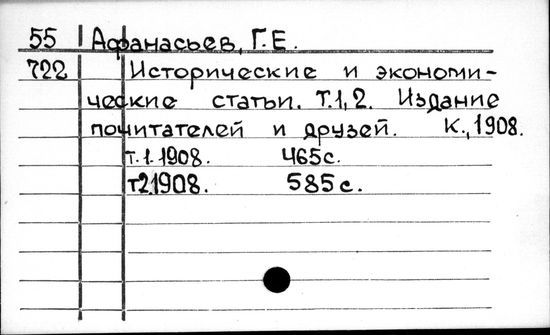 55 Афанасьев, Г.Е.
722 Исторические и экономи-
ческие статьи. Т.1, 2. Издание
почитателей и друзей. К., 1908.
т.1.1908. 465с.
т2.1908. 585с.